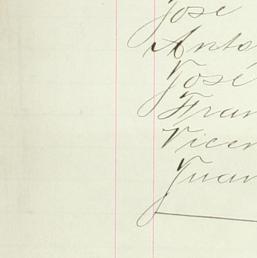 José
Anto
José
Fran
Vicen
Juan